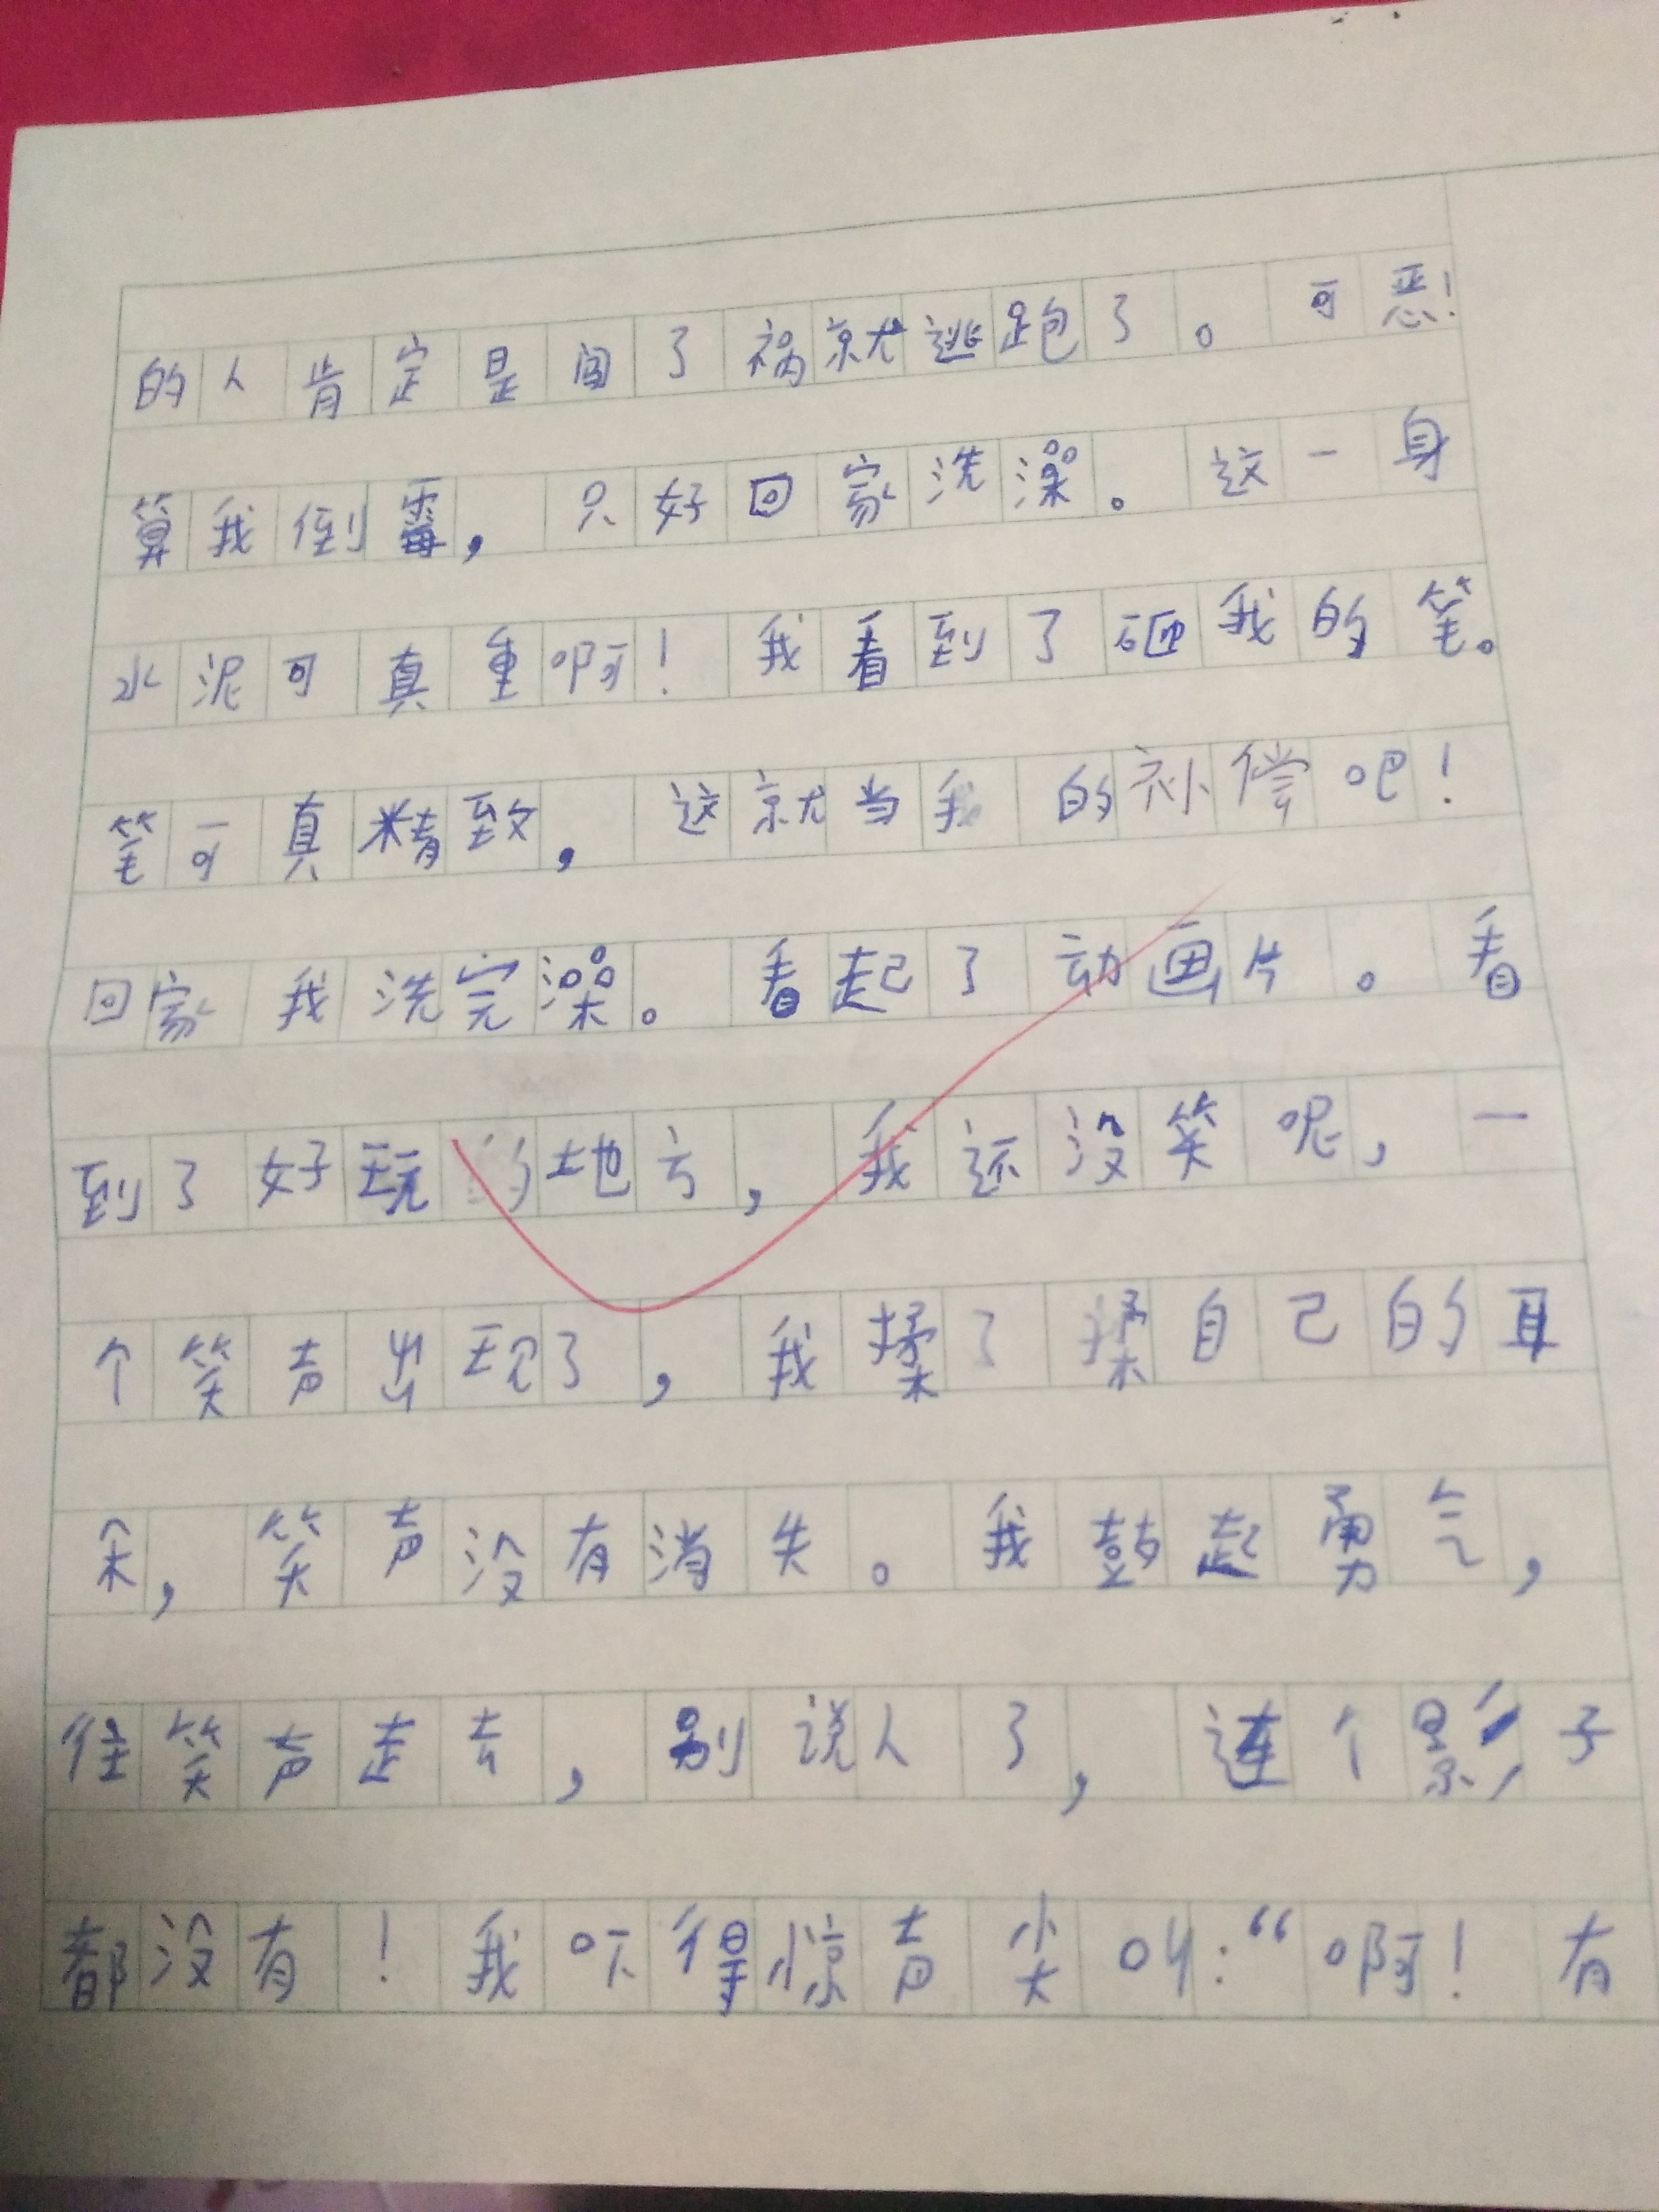 的人肯定是闯了祸就逃跑了。可恶!
算我倒霉，只好回家洗澡。这一身
水泥可真重啊！我看到了砸我的笔。
笔可真精致，这就当我的补偿吧！
回家我洗完澡。看起了动画片。看
到了好玩的地方，我还没笑呢，一
个笑声出现了，我揉了揉自己的耳
朵，笑声没有消失。我鼓起勇气，
往笑声走去，别说人了，连个影子
都没有！我吓得惊声尖叫：“啊！有